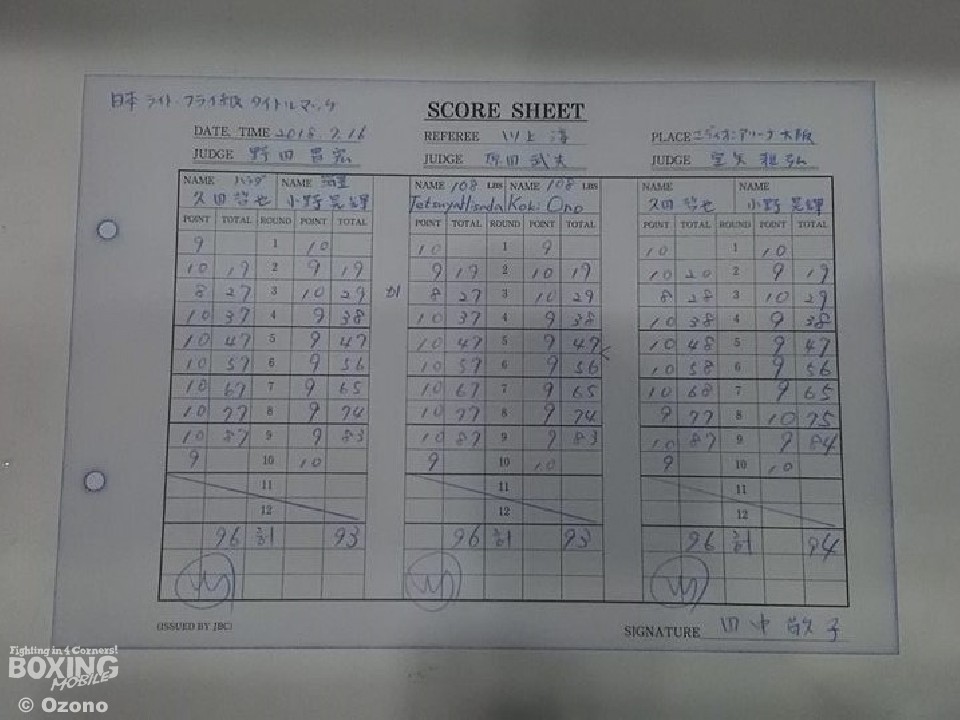 日本 ライト・フライ級 タイトルマッチ
SCORE SHEET
DATE, TIME 2018.7.16 REFEREE 川上 淳 PLACE エディオンアリーナ大阪
JUDGE 野田昌宏 JUDGE 原田武夫 JUDGE 宮矢雅弘
NAME ハンダ NAME NAME 108 LBS NAME 108 LBS NAME NAME
久田哲也 小野晃輝 Tetsuya Hisada Koki Ono 久田哲也 小野晃輝
POINT TOTAL ROUND POINT TOTAL POINT TOTAL ROUND POINT TOTAL POINT TOTAL ROUND POINT TOTAL
9 1 10 10 1 9 10 1 10
10 19 2 9 19 9 19 2 10 19 10 20 2 9 19
8 27 3 10 29 8 27 3 10 29 8 28 3 10 29
10 37 4 9 38 10 37 4 9 38 10 38 4 9 38
10 47 5 9 47 10 47 5 9 47 10 48 5 9 47
10 57 6 9 56 10 57 6 9 56 10 58 6 9 56
10 67 7 9 65 10 67 7 9 65 10 68 7 9 65
10 77 8 9 74 10 77 8 9 74 9 77 8 10 75
10 87 9 9 83 10 87 9 9 83 10 87 9 9 84
9 10 10 9 10 10 9 10 10
11 11 11
12 12 12
96 計 93 96 計 93 96 計 94
(ISSUED BY JBC) SIGNATURE 田中 敬子
Fighting in 4 Corners!
BOXING
MOBILE
© Ozono